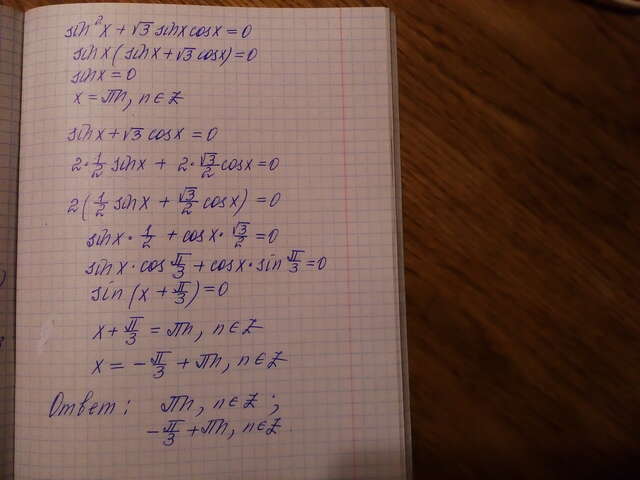 sin²x + √3 sinx cosx = 0
sinx (sinx + √3 cosx) = 0
sinx = 0
x = πn, n ∈ Z
sinx + √3 cosx = 0
2 · 1/2 sinx + 2 · √3/2 cosx = 0
2(1/2 sinx + √3/2 cosx) = 0
sinx · 1/2 + cosx · √3/2 = 0
sinx · cos π/3 + cosx · sin π/3 = 0
sin(x + π/3) = 0
x + π/3 = πn, n ∈ Z
x = -π/3 + πn, n ∈ Z
Ответ: πn, n ∈ Z;
-π/3 + πn, n ∈ Z